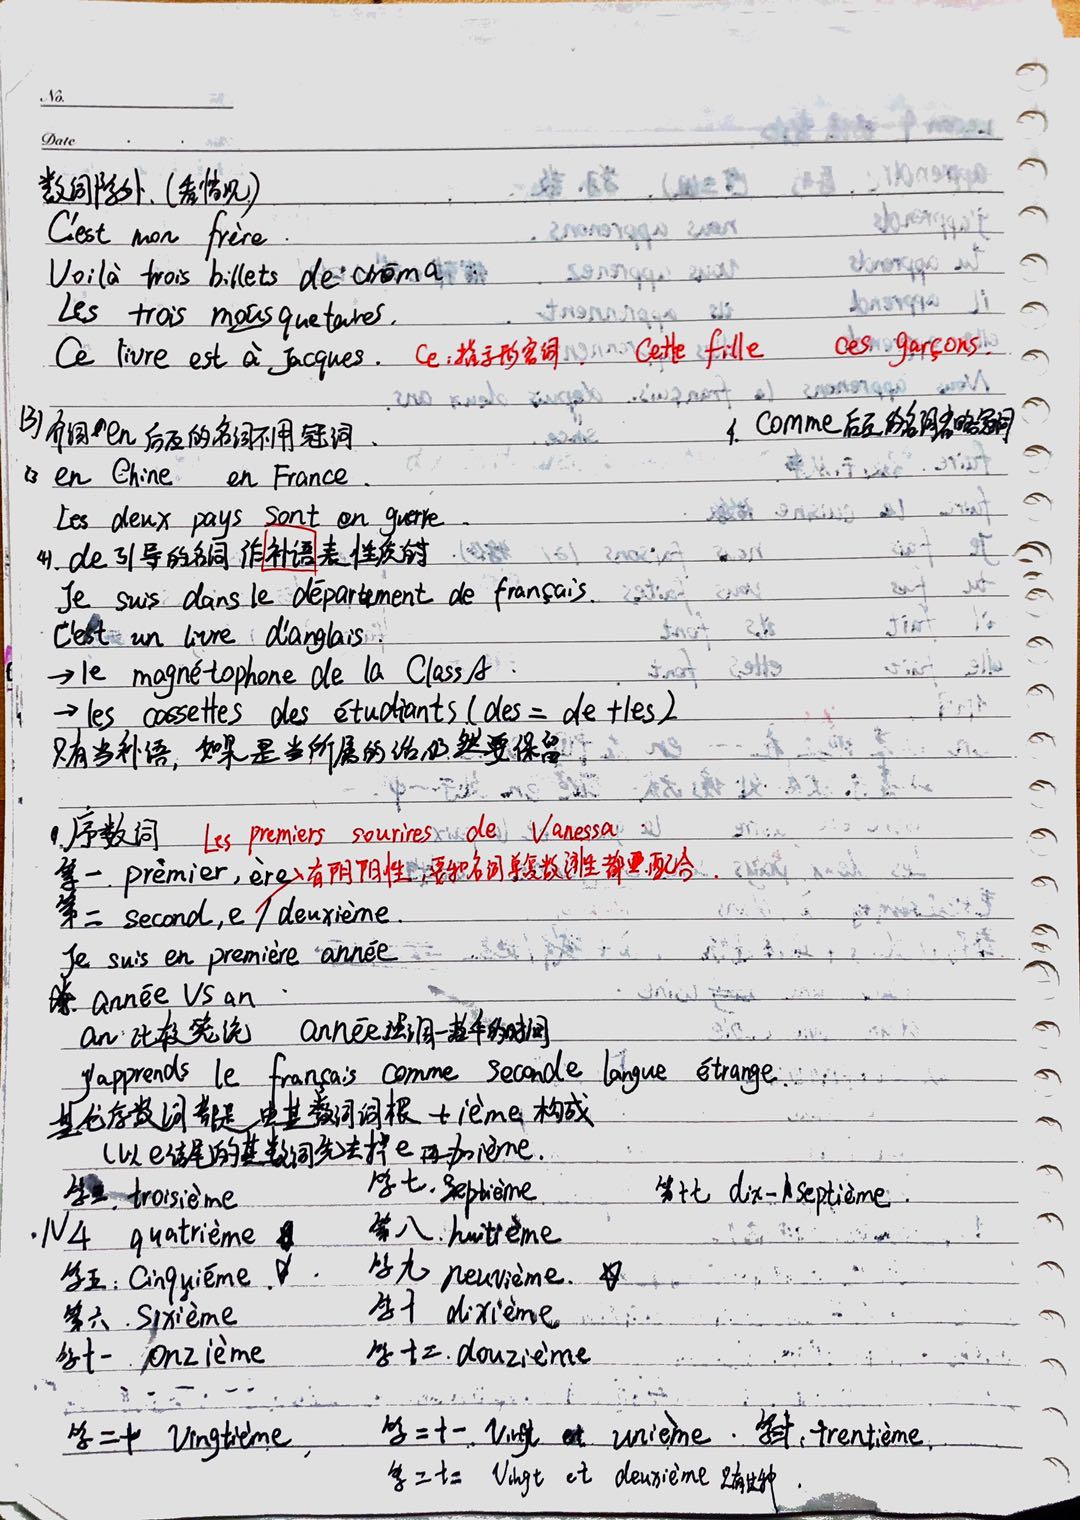 No.
Date
数词除外.(看情况)
C'est mon frère.
Voilà trois billets de cinéma.
Les trois mousquetaires.
Ce livre est à Jacques. Ce:指示形容词 Cette fille ces garçons.
(3) 介词 en 后面的名词不用冠词. 5. Comme后面的名词省略冠词
en Chine en France.
Les deux pays sont en guerre.
4). de引导的名词作补语表性质时
Je suis dans le département de français.
C'est un livre d'anglais.
→le magnétophone de la Class A.
→les cassettes des étudiants (des = de+les)
只有当补语,如果是当所属的话仍然要保留
1.序数词 Les premiers sourires de Vanessa
第一 prèmier, ère→有阴阳性,要和名词单复数词性都要配合.
第二 second, e / deuxième.
Je suis en première année
année VS an
an 比较笼统 année强调一整年的时间
J'apprends le français comme seconde langue étrange.
其它序数词都是由基数词词根 + ième 构成
(以e结尾的基数词先去掉e再加ième.
第三. troisième 第七. septième 第十七 dix-septième.
4 quatrième 第八. huitième
第五: Cinquième 第九 neuvième.
第六. Sixième 第十 dixième
第十一 onzième 第十二. douzième
第二十 Vingtième, 第二十一. Vingt et unième. trentième.
第二十二 Vingt et deuxième 只有这种.